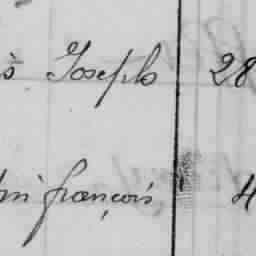 Joseph 28
françois 4